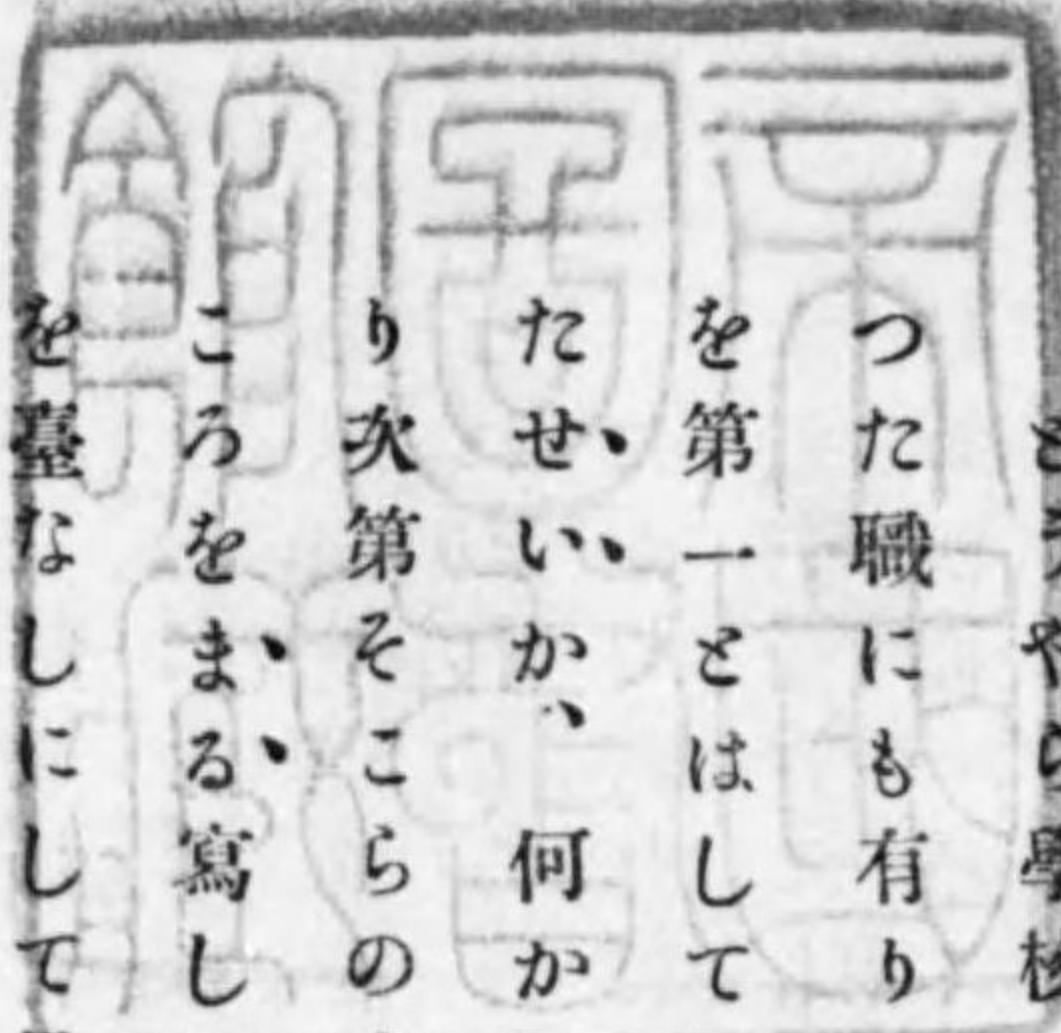 やら學校
つた職にも有り
を第一とはして
たせいか、何か
り次第そこらの
ころをまる寫し
を臺なしにして